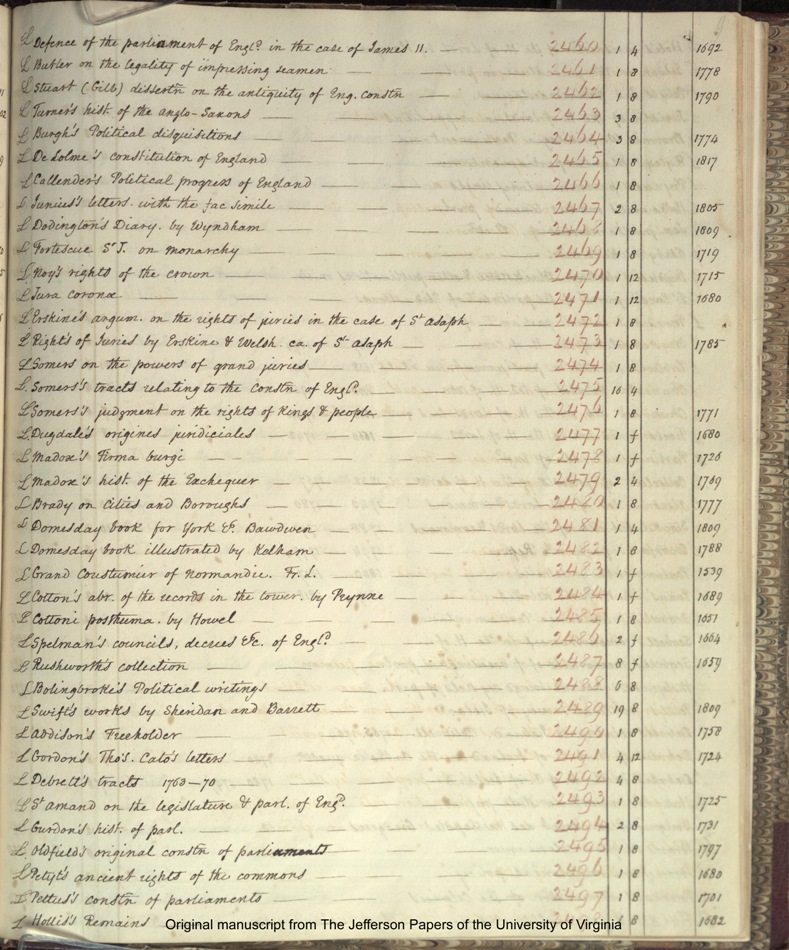 L Defence of the parliament of Engld. in the case of James II. 2460 1 4 1692
L Butler on the legality of impressing seamen 2461 1 8 1778
L Stuart (Gilb) dissertn on the antiquity of Eng. constn 2462 1 8 1790
L Turner's hist. of the anglo-Saxons 2463 3 8
L Burgh's Political disquisitions 2464 3 8 1774
L De Lolme's constitution of England 2465 1 8 1817
L Callender's Political progress of England 2466 1 8
L Junius's letters with the fac simile 2467 2 8 1805
L Dodington's Diary. by Wyndham 2468 1 8 1809
L Fortescue Sr J. on monarchy 2469 1 8 1719
L Noy's rights of the crown 2470 1 12 1715
L Jura coronæ 2471 1 12 1680
L Erskine's argum. on the rights of juries in the case of St asaph 2472 1 8
L Rights of Juries by Erskine & Welsh. ca. of St asaph 2473 1 8 1785
L Somers on the powers of grand juries 2474 1 8
L Somers's tracts relating to the Constn of Engld. 2475 16 4
L Somers's judgment on the rights of kings & people 2476 1 8 1771
L Dugdale's origines juridiciales 2477 1 f 1680
L Madox's Firma burgi 2478 1 f 1726
L Madox's hist. of the Exchequer 2479 2 4 1769
L Brady on cities and Boroughs 2480 1 8 1777
L Domesday book for York &c. Bawdwen 2481 1 4 1809
L Domesday book illustrated by Kelham 2482 1 8 1788
L Grand Coustumier of normandie. Fr. L. 2483 1 f 1539
L Cotton's abr. of the records in the tower. by Prynne 2484 1 f 1689
L Cottoni posthuma. by Howel 2485 1 8 1651
L Spelman's councils, decrees &c. of Engld. 2486 2 f 1664
L Rushworth's collection 2487 8 f 1659
L Bolingbroke's Political writings 2488 6 8
L Swift's works by Sheridan and Barrett 2489 19 8 1809
L Addison's Freeholder 2490 1 8 1758
L Gordon's Tho's. Cato's letters 2491 4 12 1724
L Debrett's tracts 1763-70 2492 4 8
L St amand on the legislature & parl. of Engd. 2493 1 8 1725
L Gurdon's hist. of parl. 2494 2 8 1731
L Oldfield's original constn of parliaments 2495 1 8 1797
L Petyt's ancient rights of the commons 2496 1 8 1680
L Pettus's constn of parliaments 2497 1 8 1701
L Hollis's Remains 8 1682
Original manuscript from The Jefferson Papers of the University of Virginia